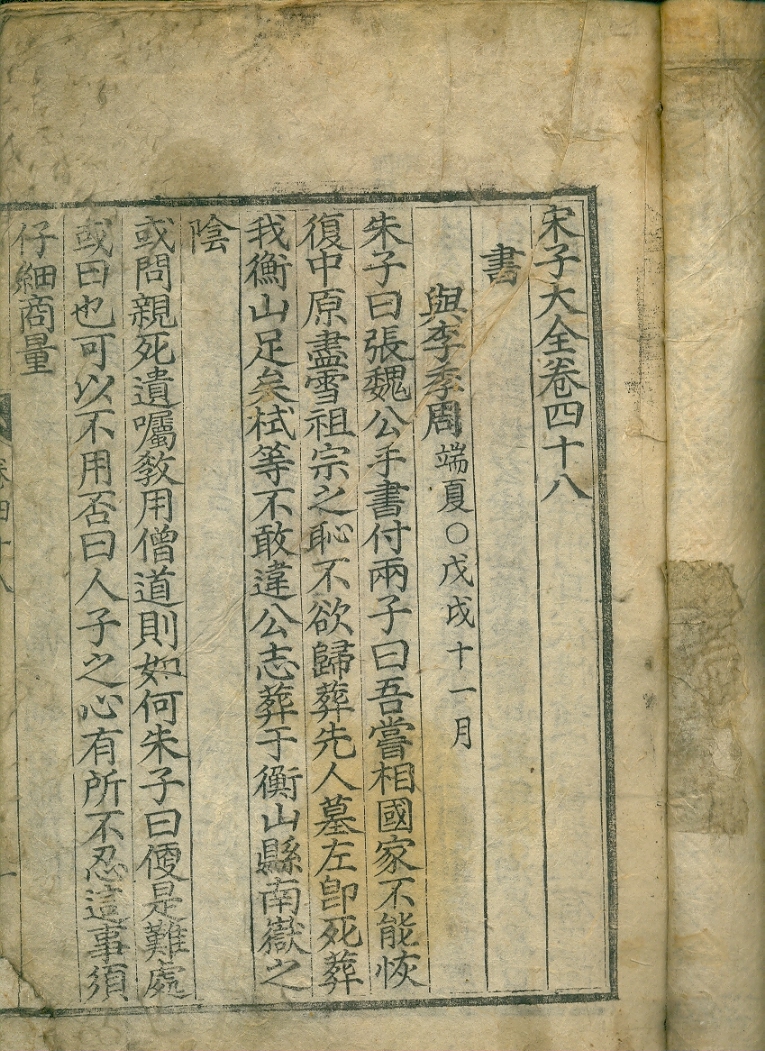 宋子大全卷四十八
書
與李季周 端夏○戊戌十一月
朱子曰張魏公手書付兩子曰吾嘗相國家不能恢
復中原盡雪祖宗之恥不欲歸葬先人墓左卽死葬
我衡山足矣栻等不敢違公志葬于衡山縣南嶽之
陰
或問親死遺囑敎用僧道則如何朱子曰便是難處
或曰也可以不用否曰人子之心有所不忍這事須
仔細商量
卷四十八
一